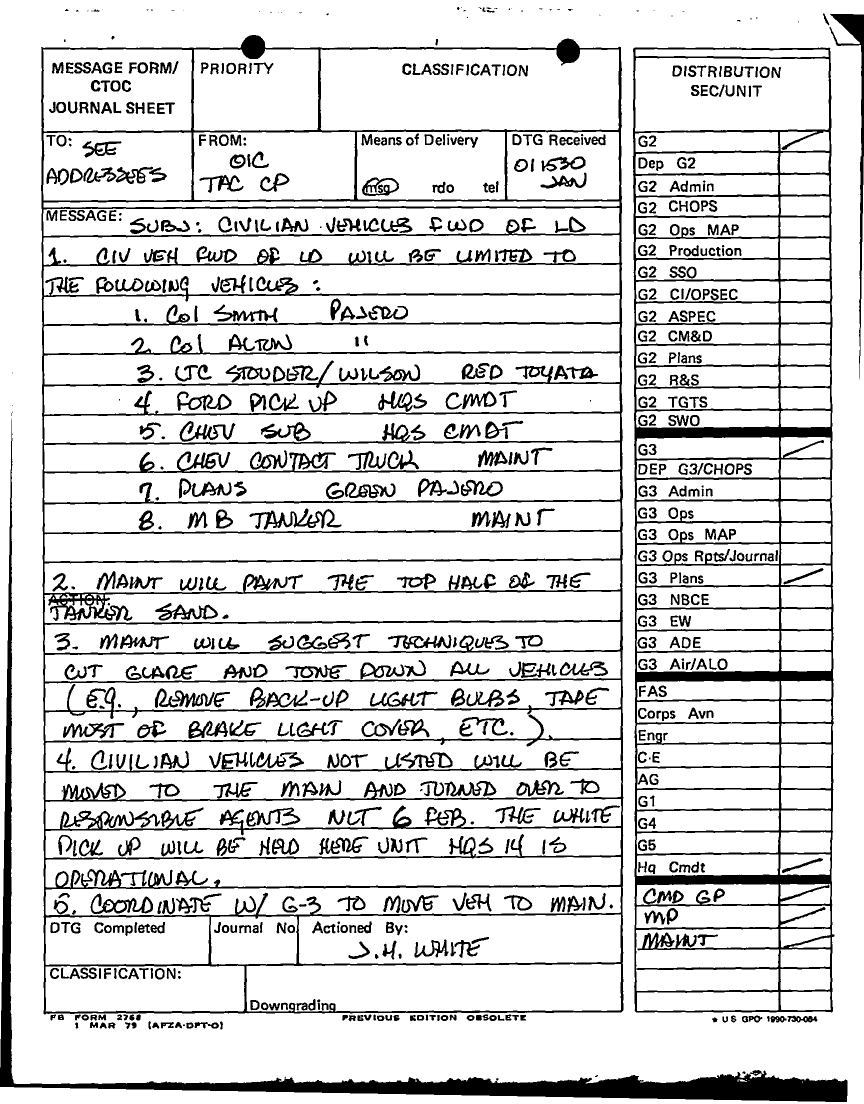 MESSAGE FORM/
CTOC
JOURNAL SHEET
PRIORITY
CLASSIFICATION
TO: SEE
ADDRESSEES
FROM:
OIC
TAC CP
Means of Delivery
msg rdo tel
DTG Received
011530
JAN
MESSAGE: SUBJ: CIVILIAN VEHICLES FWD OF LD
1. CIV VEH FWD OF LD WILL BE LIMITED TO
THE FOLLOWING VEHICLES:
1. Col SMITH PAJERO
2. Col ALTON "
3. LTC STOUDER/WILSON RED TOYATA
4. FORD PICK UP HQS CMDT
5. CHEV SUB HQS CMDT
6. CHEV CONTACT TRUCK MAINT
7. PLANS GREEN PAJERO
8. MB TANKER MAINT
2. MAINT WILL PAINT THE TOP HALF OF THE
ACTION:
TANKER SAND.
3. MAINT WILL SUGGEST TECHNIQUES TO
CUT GLARE AND TONE DOWN ALL VEHICLES
(E.g., REMOVE BACK-UP LIGHT BULBS, TAPE
MOST OF BRAKE LIGHT COVER, ETC.).
4. CIVILIAN VEHICLES NOT LISTED WILL BE
MOVED TO THE MAIN AND TURNED OVER TO
RESPONSIBLE AGENTS NLT 6 FEB. THE WHITE
PICK UP WILL BE HELD HERE UNIT HQS 14 IS
OPERATIONAL.
5. COORDINATE W/ G-3 TO MOVE VEH TO MAIN.
DTG Completed
Journal No.
Actioned By:
J.H. WHITE
CLASSIFICATION:
Downgrading
FB FORM 2768
1 MAR 79 (AFZA-DPT-O)
PREVIOUS EDITION OBSOLETE
* US GPO: 1990-730-084
DISTRIBUTION
SEC/UNIT
G2
Dep G2
G2 Admin
G2 CHOPS
G2 Ops MAP
G2 Production
G2 SSO
G2 CI/OPSEC
G2 ASPEC
G2 CM&D
G2 Plans
G2 R&S
G2 TGTS
G2 SWO
G3
DEP G3/CHOPS
G3 Admin
G3 Ops
G3 Ops MAP
G3 Ops Rpts/Journal
G3 Plans
G3 NBCE
G3 EW
G3 ADE
G3 Air/ALO
FAS
Corps Avn
Engr
C-E
AG
G1
G4
G5
Hq Cmdt
CMD GP
MP
MAINT